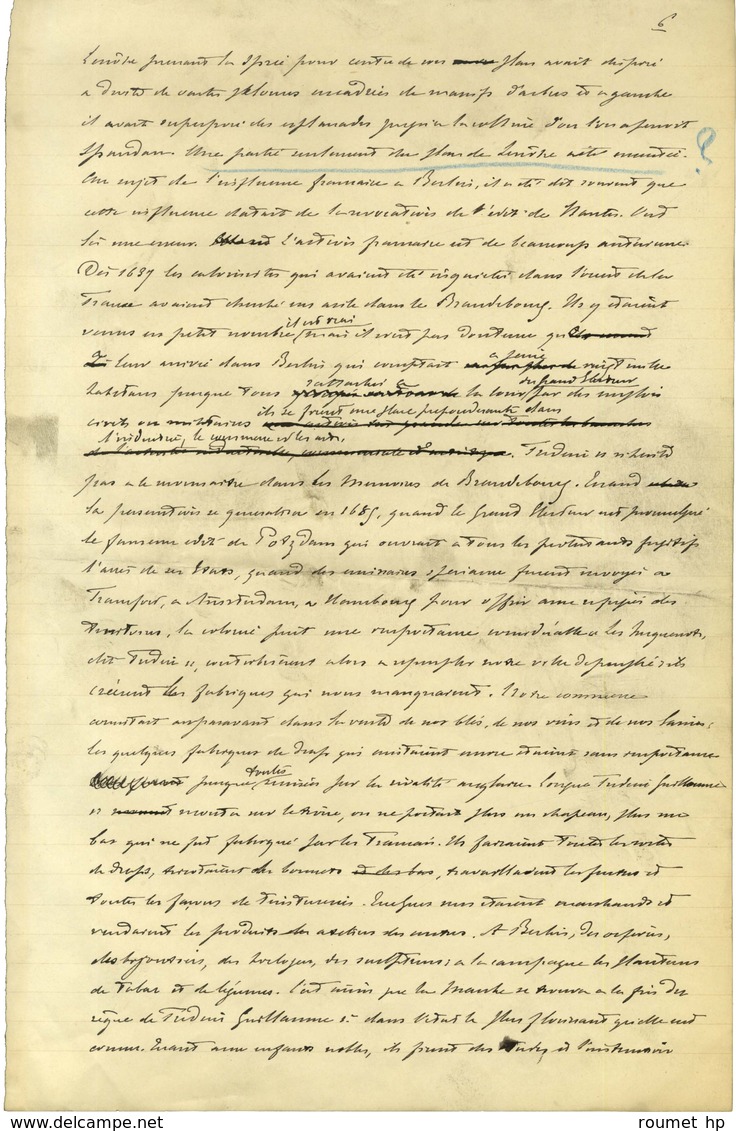 6
Lenôtre prenant la Sprée pour centre de ses plans avait disposé
à droite de vastes pelouses encadrées de massifs d'arbres et à gauche
il avait superposé des esplanades jusqu'à la colline d'où l'on aperçoit
Spandau. Une partie seulement du plan de Lenôtre a été exécutée. ?
Au sujet de l'influence française à Berlin, il a été dit souvent que
cette influence datait de la révocation de l'édit de Nantes. C'est
là une erreur. L'action française est de beaucoup antérieure.
Dès 1687 les calvinistes qui avaient été inquiétés dans l'ouest de la
France avaient cherché un asile dans le Brandebourg. Ils y étaient
il est vrai
venus en petit nombre, mais il n'est pas douteux que
à peine
leur arrivée dans Berlin qui comptait vingt mille
s'attacher à du Grand Electeur
habitans presque tous la cour par des emplois
ils se firent une place prépondérante dans
civils ou militaires
l'industrie, le commerce et les arts.
Frédéric II n'hésite
pas à le reconnaître dans les Mémoires de Brandebourg. Quand
la persécution se généralisa en 1685, quand le Grand Electeur eut promulgué
le fameux édit de Potzdam qui ouvrait à tous les protestants fugitifs
l'accès de ses Etats, quand des émissaires spéciaux furent envoyés à
Francfort, à Amsterdam, à Hambourg pour offrir aux réfugiés des
la colonie prit une importance considérable « Les huguenots,
dit Frédéric II, contribuèrent alors à repeupler notre ville dépeuplée ils
créèrent les fabriques qui nous manquaient. Notre commerce
consistait auparavant dans la vente de nos blés, de nos vins et de nos laines;
les quelques fabriques de draps qui existaient encore étaient sans importance
toutes
presque ruinées par la rivalité anglaise. Lorsque Frédéric Guillaume
monta sur le trône, on ne portait plus un chapeau, plus un
bas qui ne fut fabriqué par les Français. Ils faisaient toutes les sortes
de draps, tricotaient des bonnets et des bas, travaillaient les feutres et
toutes les façons de teinturerie. Quelques uns étaient marchands et
vendaient les produits des ateliers des autres. A Berlin, des orfèvres,
des bijoutiers, des horlogers, des sculpteurs; à la campagne les planteurs
de tabac et de légumes. C'est ainsi que la Marche se trouva à la fin du
règne de Frédéric Guillaume Ier dans l'état le plus florissant qu'elle eut
connu. Quant aux enfants nobles, ils firent des études et l'instruction
roumet hp